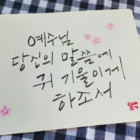 예수님
당신의 말씀에
귀 기울이게
하조서